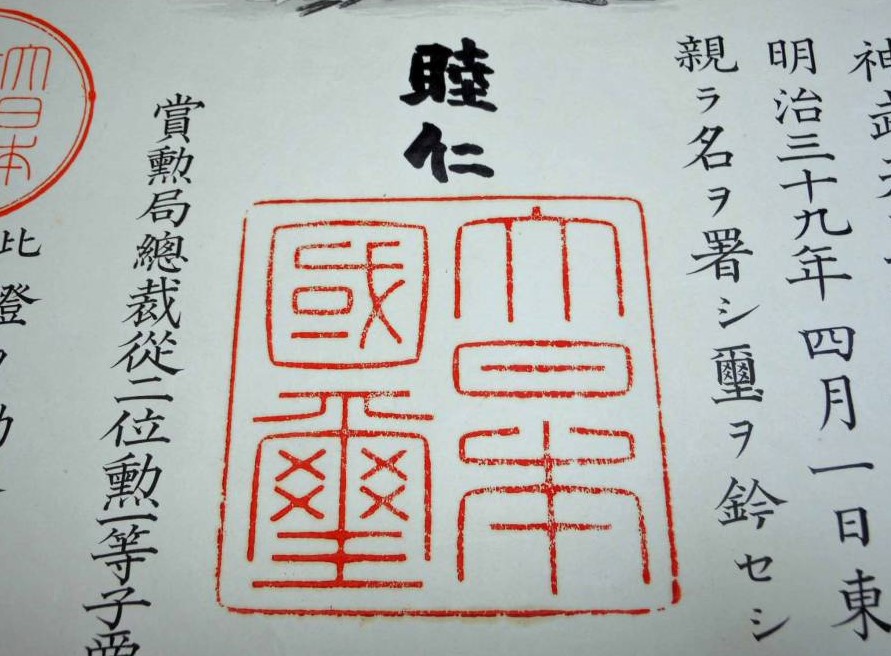 神武天
明治三十九年四月一日東
親ラ名ヲ署シ璽ヲ鈐セシ
睦仁
大日本
國璽
賞勳局總裁從二位勳一等子爵
此證ヲ
大日本